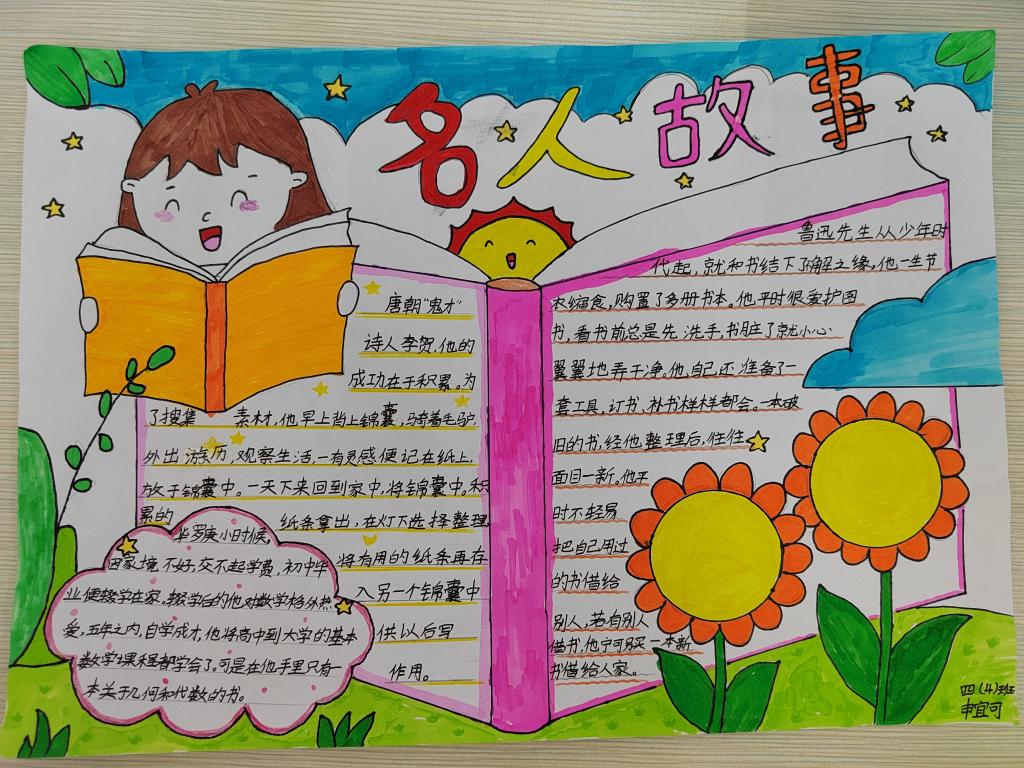 名人故事
唐朝"鬼才"
诗人李贺,他的
成功在于积累。为
了搜集 素材,他早上背上锦囊,骑着毛驴
外出游历,观察生活,一有灵感便记在纸上,
放于锦囊中。一天下来回到家中,将锦囊中。积
累的 纸条拿出,在灯下选择整理
将有用的纸条再存
入另一个锦囊中
供以后写
作用。
华罗庚小时候
因家境,不好,交不起学费,初中毕
业便辍学在家。辍学后的他对数学格外热
爱,五年之内,自学成才,他将高中到大学的基本
数学课程都学会了。可是在他手里只有一
本关于几何和代数的书。
鲁迅先生从少年时
代起,就和书结下了解之缘,他一生节
衣缩食,购置了多册书本。他平时很爱护图
书,看书前总是先洗手,书脏了就小心
翼翼地弄干净。他自己还准备了一
套工具,订书、补书样样都会。一本破
旧的书,经他整理后,往往
面目一新。他平
时不轻易
把自己用过
的书借给
别人,若有别人
借书,他宁可另买一本新
书借给人家。
四(4)班
申宜可